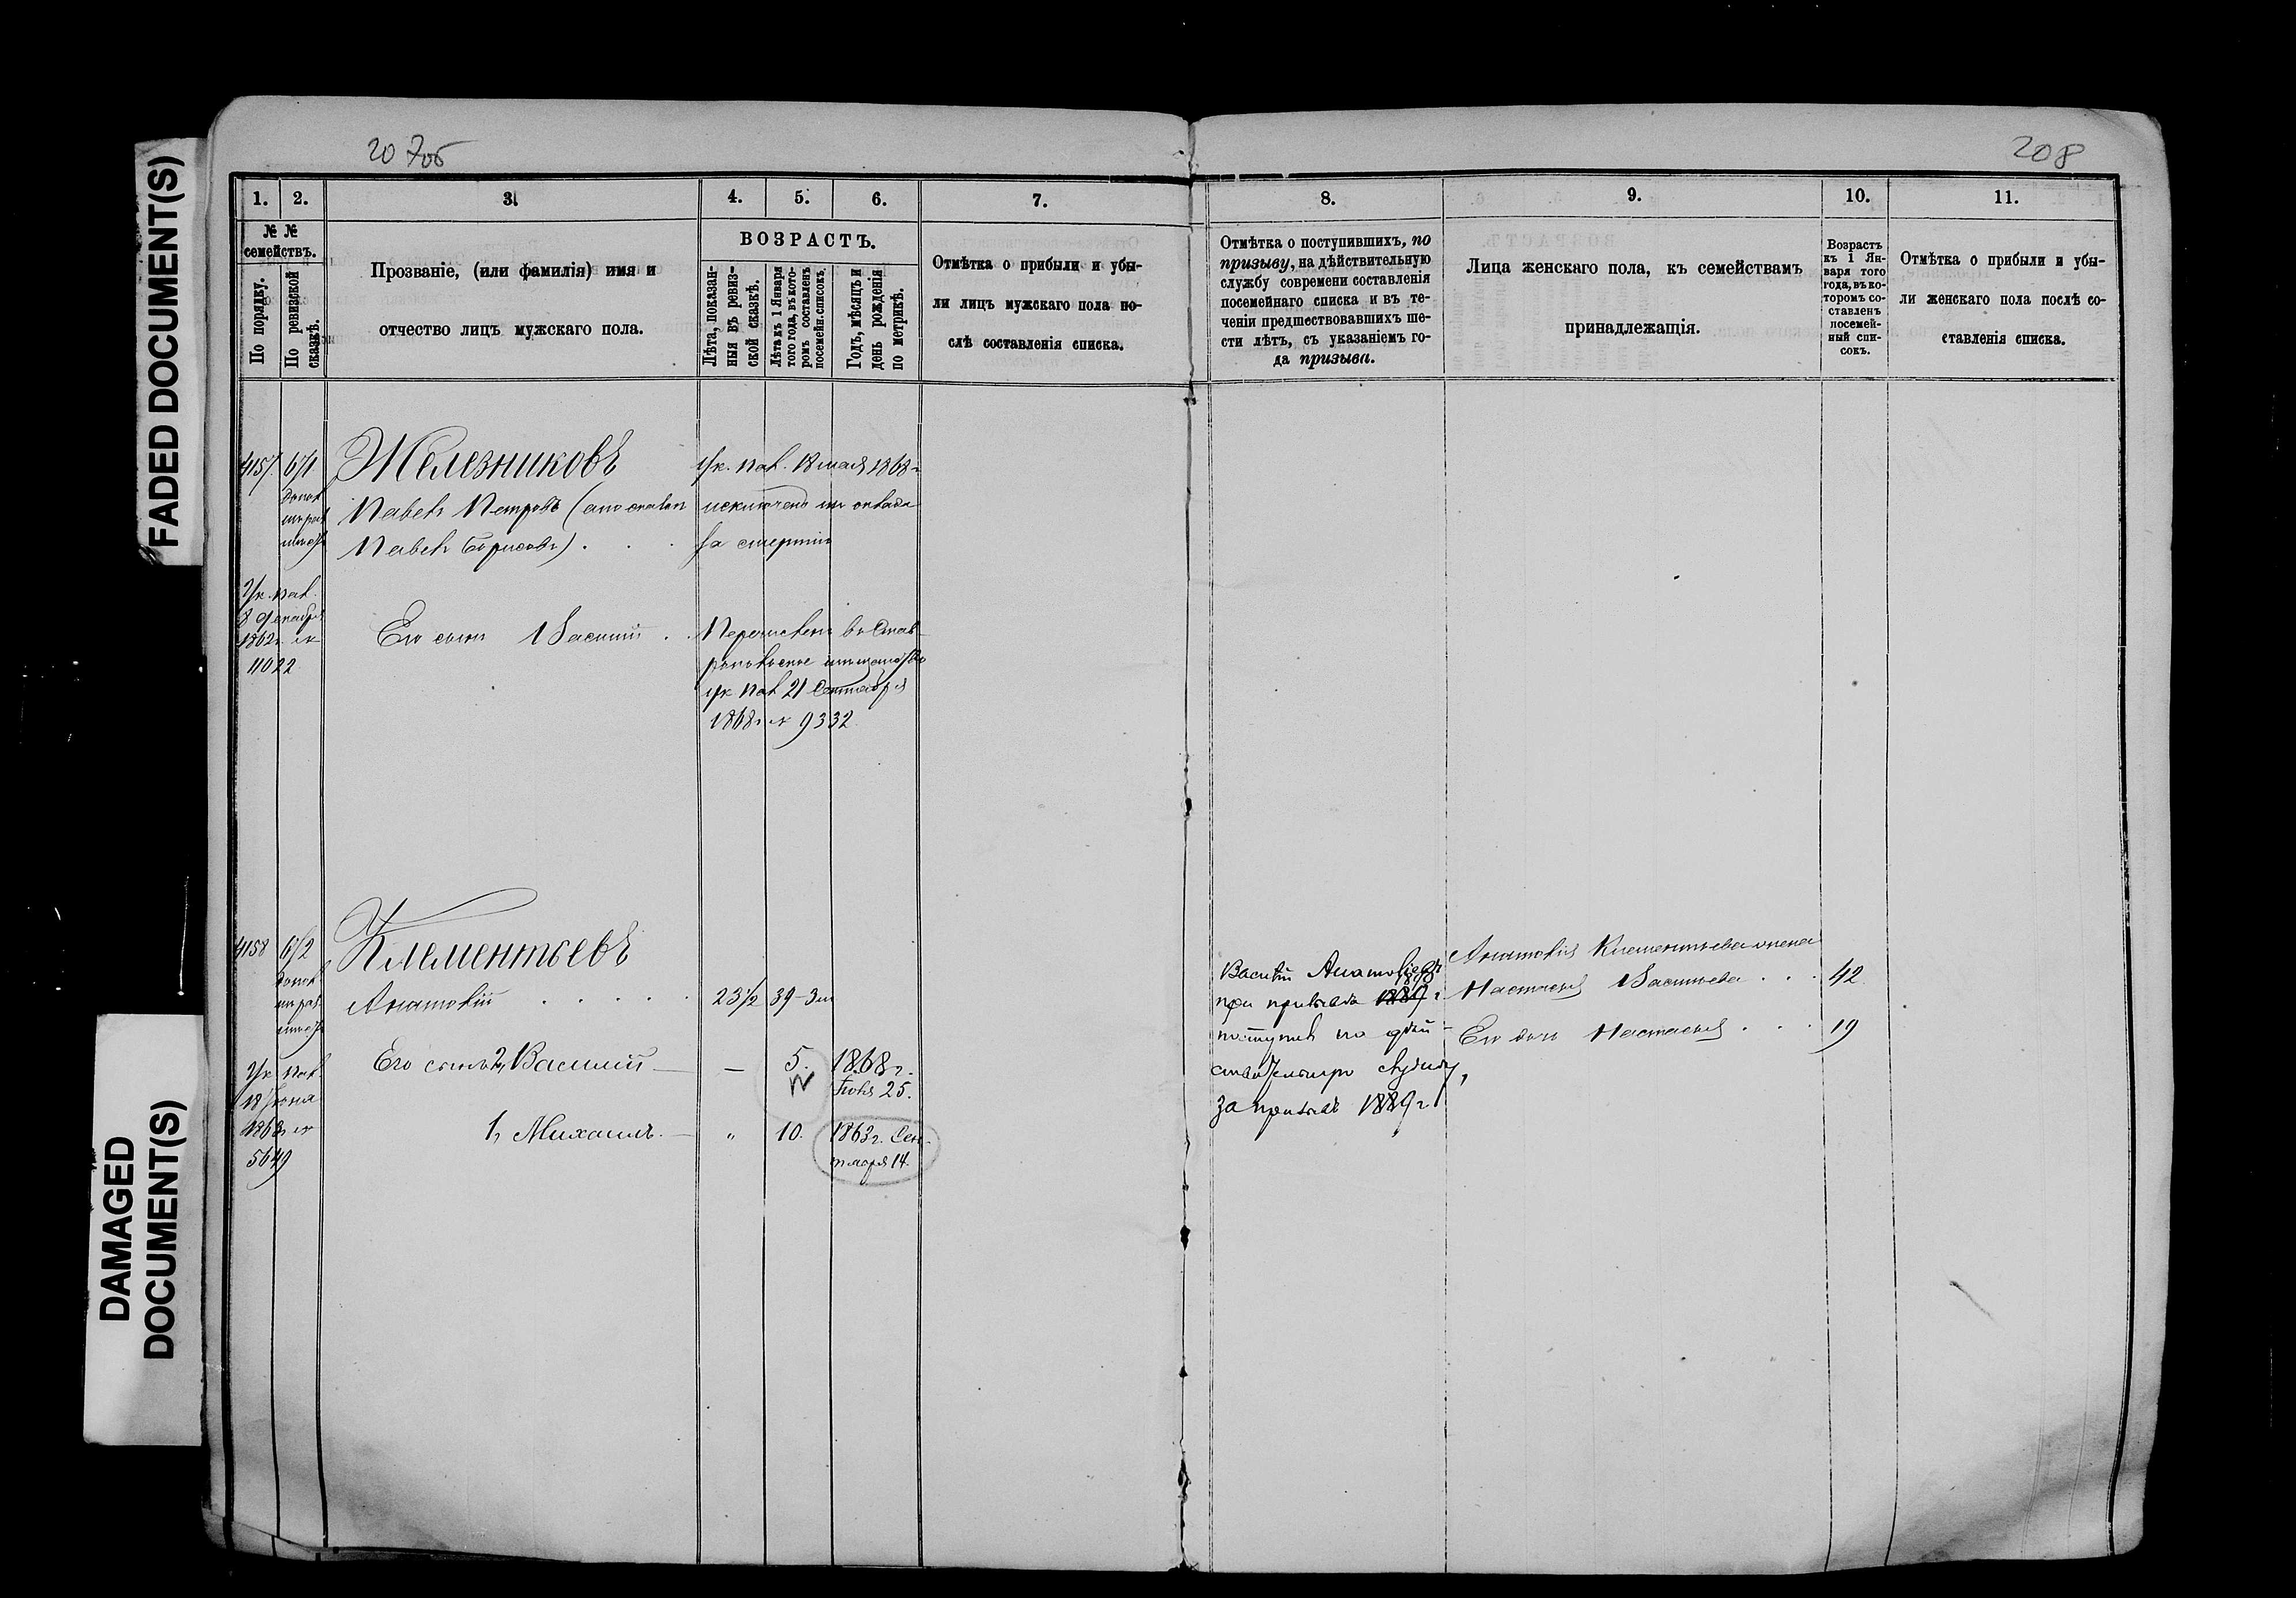 FADED DOCUMENT(S)
DAMAGED
DOCUMENT(S)
207об
208
1.
2.
3.
4.
5.
6.
7.
8.
9.
10.
11.
№ №
семействъ.
По порядку.
По ревизской
сказкѣ.
Прозваніе, (или фамилія) имя и
отчество лицъ мужскаго пола.
ВОЗРАСТЪ.
Лѣта, показан-
ныя въ ревиз-
ской сказкѣ.
Лѣта къ 1 Января
того года, въ кото-
ромъ составленъ
посемейн. списокъ.
Годъ, мѣсяцъ и
день рожденія
по метрикѣ.
Отмѣтка о прибыли и убы-
ли лицъ мужскаго пола по-
слѣ составленія списка.
Отмѣтка о поступившихъ, по
призыву, на дѣйствительную
службу со времени составленія
посемейнаго списка и въ те-
ченіи предшествовавшихъ ше-
сти лѣтъ, съ указаніемъ го-
да призыва.
Лица женскаго пола, къ семействамъ
принадлежащія.
Возрастъ
къ 1 Ян-
варя того
года, въ ко-
торомъ со-
ставленъ
посемей-
ный спи-
сокъ.
Отмѣтка о прибыли и убы-
ли женскаго пола послѣ со-
ставленія списка.
4157
Желѣзниковъ
Павелъ Петровъ (
Павелъ Борисовъ)
Ук. пал. 18 мая 1868 г
исключенъ изъ оклада
за смертію
Ук. пал.
8 Декабря
1862 г. №
11022
Его сынъ Василій
Перечисленъ въ Став-
ропольское мѣщанство
ук пал 21 Сентября
1868 г № 9332
4158
Клементьевъ
Анатолій
23 1/2
39
Ук. пал.
18 Іюня
1868 г №
5649
Его сынъ 2, Василій
—
5.
1868 г.
25.
1, Михаилъ
"
10.
1863 г. Сен-
тября 14.
Василій Анатоліевъ
при призывѣ 1889 г
поступилъ на дѣй-
ствительную службу,
за призывъ 1889 г
Анатолія Клементьева жена
Настасья Васильева
42
Его дочь Настасья
19